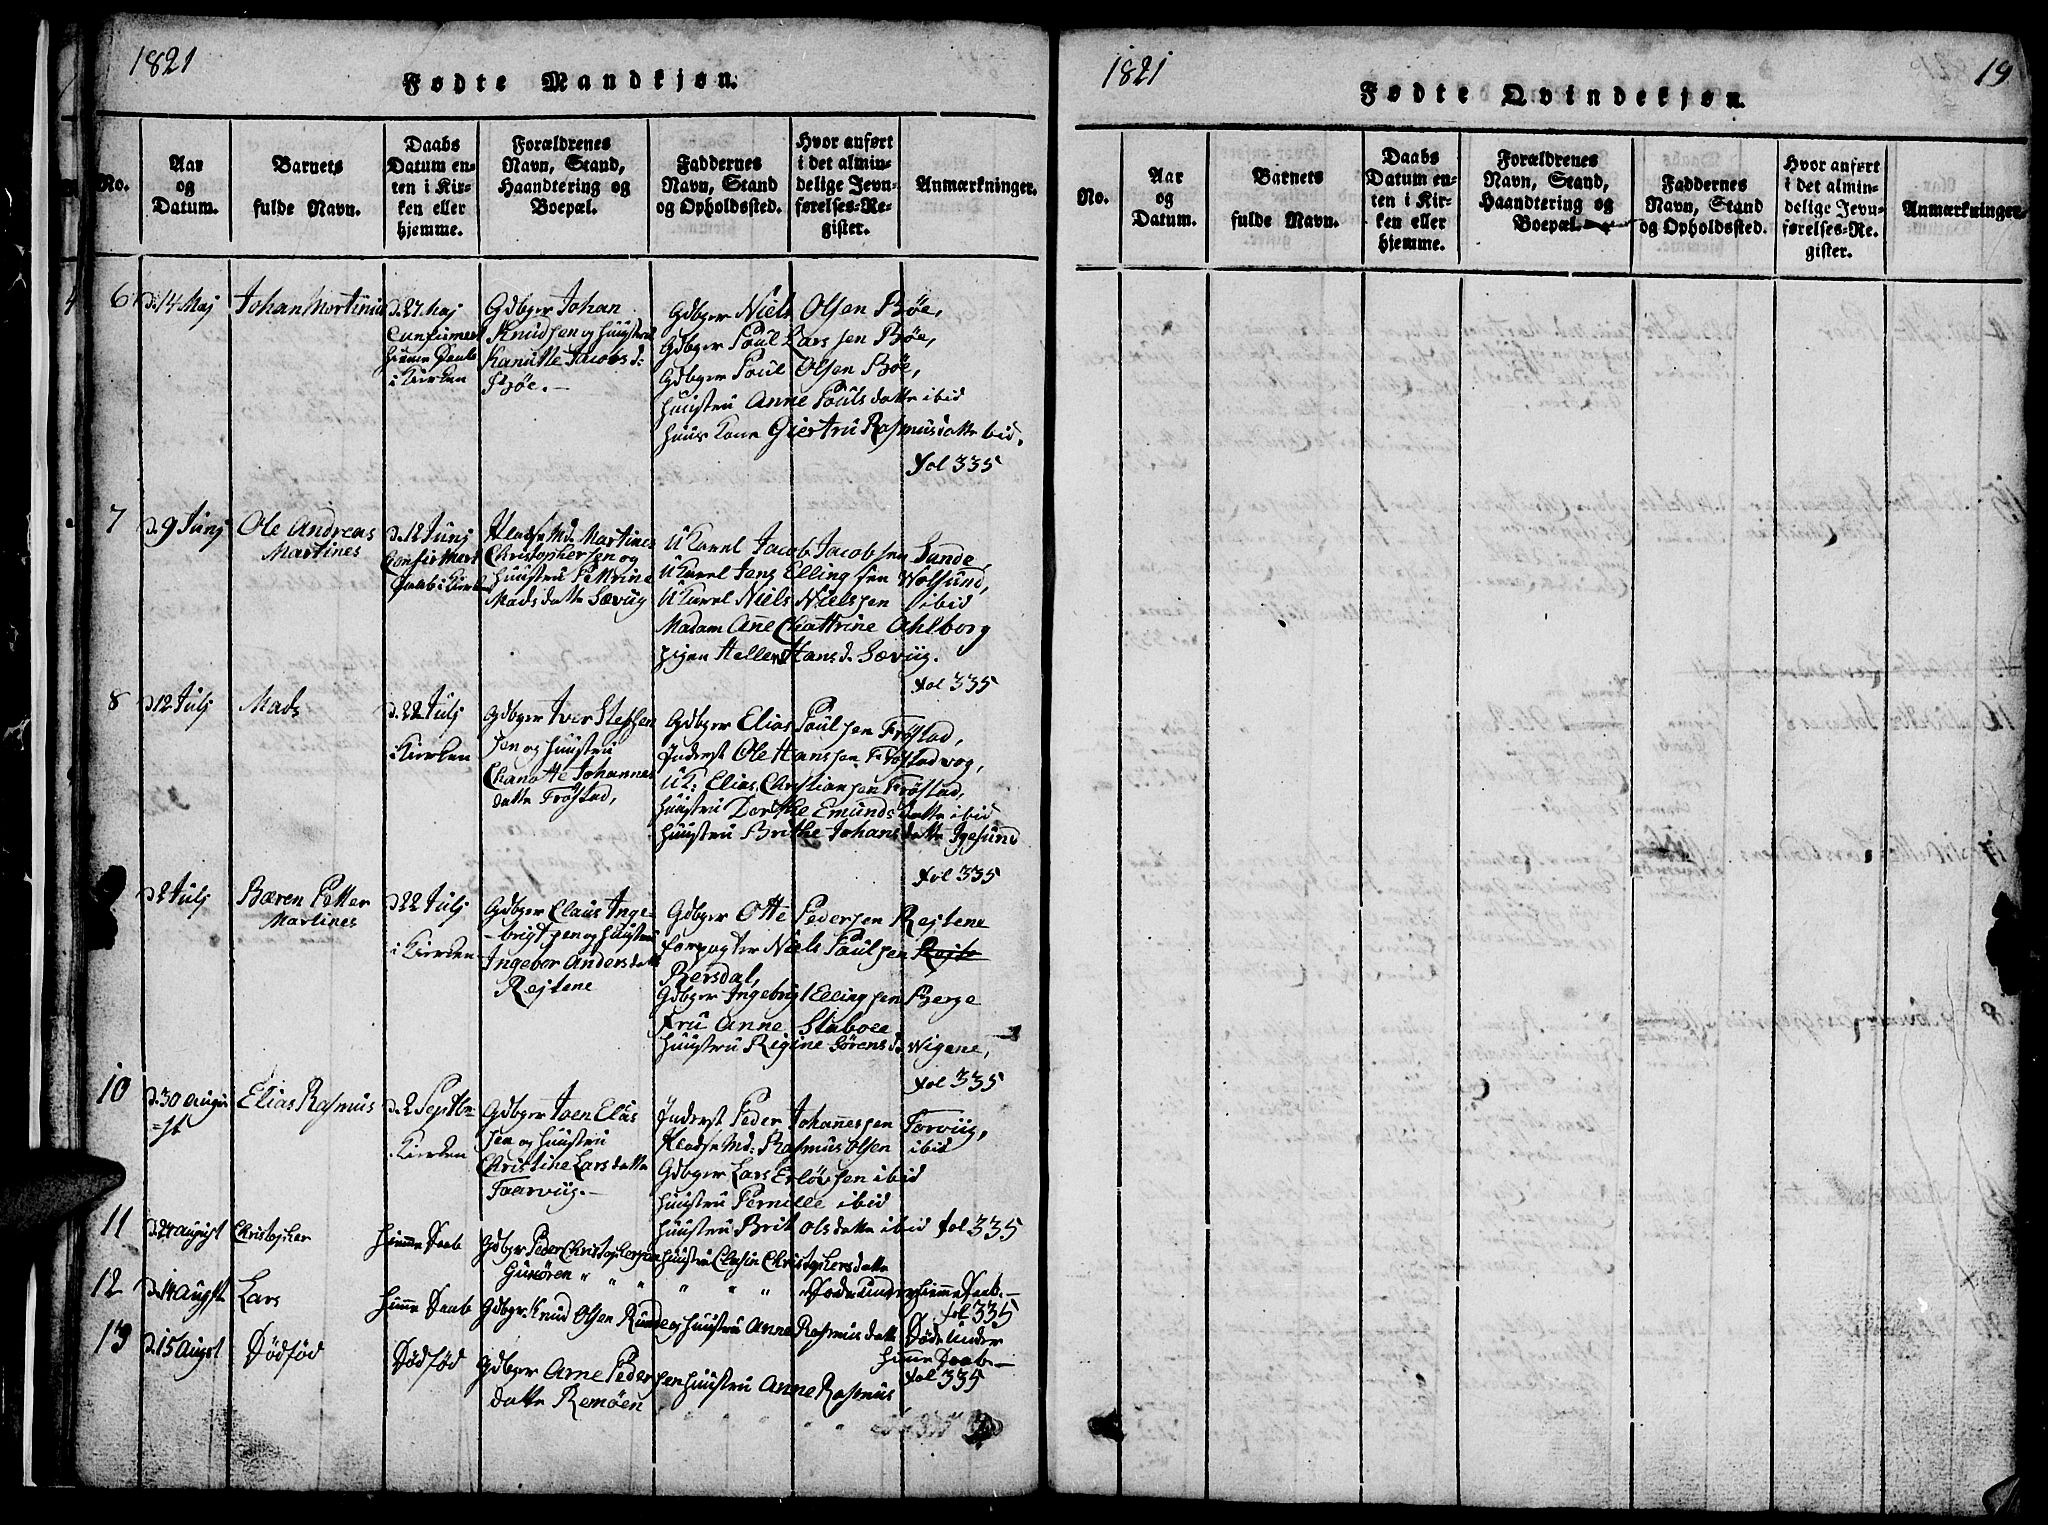 1821
Fødte Mandkjøn.
No.
Aar
og
Datum.
Barnets
fulde Navn.
Daabs
Datum en-
ten i Kir-
ken eller
hjemme.
Forældrenes
Navn, Stand,
Haandtering og
Boepæl.
Faddernes
Navn, Stand
og Opholdssted.
Hvor anført
i det almin-
delige Jevn-
førelses-Re-
gister.
Anmærkninger.
6
d. 14 Maj
Johan Mortinus
d. 27 Maj
Confirmert
hiemme Daab
i Kirken
Gdbger Johan
Knudsen og Huustru
Kanutte Jacobs d:
Bøe.
Gdbger Niels Olsen Bøe,
Gdbger Poul Larssen Bøe,
Gdbger Poul Olsen Bøe,
Huustru Anne Pouls datte ibid
Huus Kone Giertru Rasmusdatte ibid.
fol 335
7
d. 9 Junj
Ole Andreas
Martines
d. 12 Junj
Confirmert
Daab i Kirken
Md. Martines
Christophersen og
Huustru Pettrine
Madsdatte Sævüg
UKarel Jacob Jacobsen Sande,
UKarel Jens Ellingsen Wolsund,
UKarel Niels Nielssen ibid
Madam Anne Chattrine Ahlborg
pigen Hellen Hans d. Sævüg.
fol 335
8
d. 12 Julj
Mads
d. 22 Julj
i Kirken
Gdbger Iver Steffen
sen og Huustru
Chanotte Johannes
datte Frøstad,
Gdbger Elias Poulsen Frøstad,
Inderst Ole Hanssen Frøstadvog,
UK: Elias Christiansen Frøstad,
Huustru Dorthe Emunds datte ibid
Huustru Brithe Johans datte Igesund
fol 335
d. 2 Julj
Bæren Petter
Martines
d. 22 Julj
i Kirken
Gdbger Claus Inge-
brigtsen og Huustru
Ingebor Andersdatte
Rejtene
Gdbger Otte Pedersen Rejtene
Forpagter Niels Poulsen Rejte
Bersdal,
Gdbger Ingebrigt Ellingsen Berge
Fru Anne Staboee
Huustru Regine Sørens d. Wigene,
fol 335
10
d. 30 Augu
=st
Elias Rasmus
d. 2 Septbr
i Kirken
Gdbger Iven Elias
sen og Huustru
Christine Larsdatte
Taarvüg.
Inderst Peder Johannessen Torvüg,
Md: Rasmus Olsen ibid
Gdbger Lars Erløvsen ibid
Huustru Pernille ibid
Huustru Brit Olsdatte ibid fol 335
11
d. 24 August
Christopher
hiemme Daab
Gdbger Peder Christophersen Huustru Christophersdatte
" " " " " " Døde under hiemme Daab.
12
d. 14 Augst
Lars
hiemme Daab
Gdbgr: Knud Olsen Runde og Huustru Anne Rasmusdatte Døde under
hiemme Daab.
fol 335
13
d. 15 Augst
Dødfød
Dødfød
Gdbger Arne Pedersen Huustru Anne Rasmus
datte Remøen
fol 335
1821
19
Fødte Qvindekjøn.
No.
Aar
og
Datum.
Barnets
fulde Navn.
Daabs
Datum en-
ten i Kir-
ken eller
hjemme.
Forældrenes
Navn, Stand,
Haandtering og
Boepæl.
Faddernes
Navn, Stand
og Opholdssted.
Hvor anført
i det almin-
delige Jevn-
førelses-Re-
gister.
Anmærkninger.